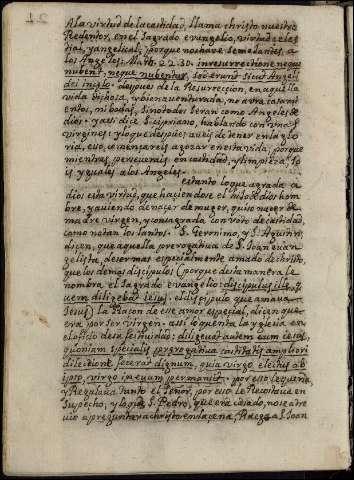 A la virtud de la castidad, llama christo nuestro
Redentor, en el sagrado evangelio, virtud celes
tial, y angelical; porque nos hace semejantes, a
los Angeles: Math. 22. 30. in resurrectione neque
nubent, neque nubentur, sed erunt sicut Angeli
dei in celo. despues de la Resurreccion, en aquella
vida dichosa, y bienaventurada, no avra casamien
tos, ni bodas, sino todos seran como Angeles de
dios. y assi dice S. Cipriano, hablando con unas
virgines: y lo que despues aveis de tener en la glo
ria, esso comensareis a gozar en esta vida; porque
mientras perseverais en castidad, y limpieza, so
is yguales a los Angeles.
es tanto lo que agrada a
dios esta virtud, que haciendose el hijo de dios hom
bre, y aviendo de nacer de muger, quiso nacer de
madre virgen, y consagrada con voto de castidad,
como notan los santos. S. Geronimo, y S. Agustin
dicen, que aquella prerogativa de S. Joan evan
gelista, de ser mas especialmente amado de christo,
que los demas discipulos (porque desta manera le
nombra el sagrado evangelio: discipulus ille, q
uem diligebat Jesus. el discipulo que amava
Jesus) la Razon de ese amor especial, dicen que
era por ser virgen. assi lo quenta la yglesia en
el oficio de su festividad: diligebat autem eum Jesus,
quoniam specialis prerogativa castitatis ampliori
dilectione fecerat dignum, quia virgo electus ab
ipso, virgo in evum permansit. por esso le queria,
y Regalava tanto el Señor, por esso le Recostava en
su pecho; y lo que S. Pedro, que era casado, no se atre
vio a preguntar a christo en la cena, Ruega a S. Joan